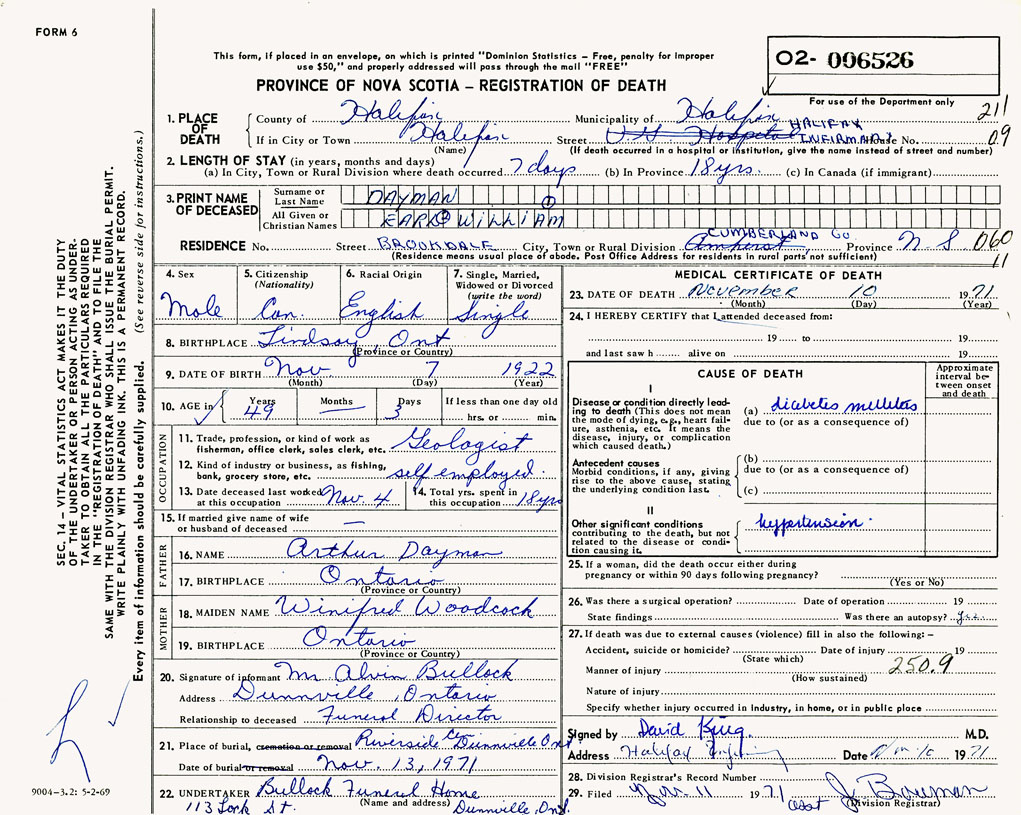 FORM 6
This form, if placed in an envelope, on which is printed "Dominion Statistics – Free, penalty for improper
use $50," and properly addressed will pass through the mail "FREE"
O2- 006526
PROVINCE OF NOVA SCOTIA – REGISTRATION OF DEATH
For use of the Department only
211
1. PLACE OF DEATH County of Halifax Municipality of Halifax
If in City or Town Halifax Street V G Hospital HALIFAX INFIRMARY House No. 09
(Name) (If death occurred in a hospital or institution, give the name instead of street and number)
2. LENGTH OF STAY (in years, months and days)
(a) In City, Town or Rural Division where death occurred 7 days (b) In Province 18 yrs. (c) In Canada (if immigrant)
3. PRINT NAME OF DECEASED
Surname or Last Name DAYMAN
All Given or Christian Names EARL WILLIAM
RESIDENCE No. Street BROOKDALE City, Town or Rural Division Amherst CUMBERLAND CO. Province N S 060
(Residence means usual place of abode. Post Office Address for residents in rural parts not sufficient)
11
4. Sex Male
5. Citizenship (Nationality) Can.
6. Racial Origin English
7. Single, Married, Widowed or Divorced (write the word) Single
8. BIRTHPLACE Lindsay, Ont
(Province or Country)
9. DATE OF BIRTH Nov 7 1922
(Month) (Day) (Year)
10. AGE in Years 49 Months — Days 3 If less than one day old
hrs. or min.
OCCUPATION
11. Trade, profession, or kind of work as fisherman, office clerk, sales clerk, etc. Geologist
12. Kind of industry or business, as fishing, bank, grocery store, etc. self employed.
13. Date deceased last worked at this occupation Nov. 4
14. Total yrs. spent in this occupation 18 yrs
15. If married give name of wife or husband of deceased —
FATHER
16. NAME Arthur Dayman
17. BIRTHPLACE Ontario
(Province or Country)
MOTHER
18. MAIDEN NAME Winifred Woodcock
19. BIRTHPLACE Ontario
(Province or Country)
20. Signature of informant Mr Alvin Bullock
Address Dunnville, Ontario
Relationship to deceased Funeral Director
21. Place of burial, cremation or removal Riverside Dunnville Ont
Date of burial or removal Nov. 13, 1971
22. UNDERTAKER Bullock Funeral Home
(Name and address)
113 Lock St. Dunnville, Ont.
MEDICAL CERTIFICATE OF DEATH
23. DATE OF DEATH November 10 1971
(Month) (Day) (Year)
24. I HEREBY CERTIFY that I attended deceased from:
19 to 19
and last saw h alive on 19
CAUSE OF DEATH
Approximate interval between onset and death
I
Disease or condition directly leading to death (This does not mean the mode of dying, e.g., heart failure, asthenia, etc. It means the disease, injury, or complication which caused death.)
(a) diabetes melletus
due to (or as a consequence of)
Antecedent causes
Morbid conditions, if any, giving rise to the above cause, stating the underlying condition last.
(b)
due to (or as a consequence of)
(c)
II
Other significant conditions contributing to the death, but not related to the disease or condition causing it.
hypertension.
25. If a woman, did the death occur either during
pregnancy or within 90 days following pregnancy?
(Yes or No)
26. Was there a surgical operation? Date of operation 19
State findings Was there an autopsy? yes
27. If death was due to external causes (violence) fill in also the following: –
Accident, suicide or homicide? Date of injury 19
(State which)
Manner of injury 250.9
(How sustained)
Nature of injury
Specify whether injury occurred in industry, in home, or in public place
Signed by David King. M.D.
Address Halifax Date 1971
28. Division Registrar's Record Number
29. Filed Nov. 11 1971 asst J. Bowman
(Division Registrar)
SEC. 14 – VITAL STATISTICS ACT MAKES IT THE DUTY
OF THE UNDERTAKER OR PERSON ACTING AS UNDER-
TAKER TO OBTAIN ALL THE PARTICULARS REQUIRED
IN THE "REGISTRATION OF DEATH" AND TO FILE THE
SAME WITH THE DIVISION REGISTRAR WHO SHALL ISSUE THE BURIAL PERMIT.
WRITE PLAINLY WITH UNFADING INK. THIS IS A PERMANENT RECORD.
Every item of information should be carefully supplied. (See reverse side for instructions.)
9004-3.2: 5-2-69